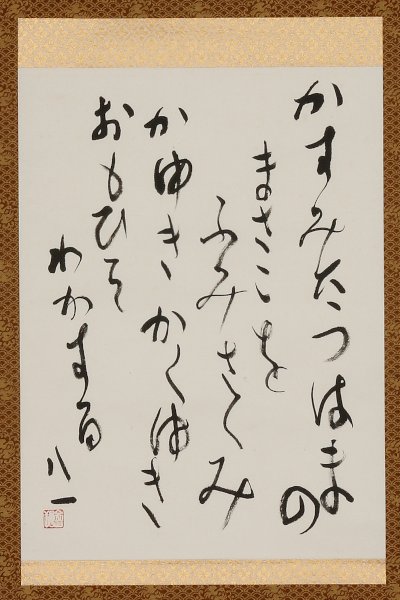 かすみたつはまの
まさこを
ふみさくみ
かゆきかくゆき
おもひそ
わかする
八一